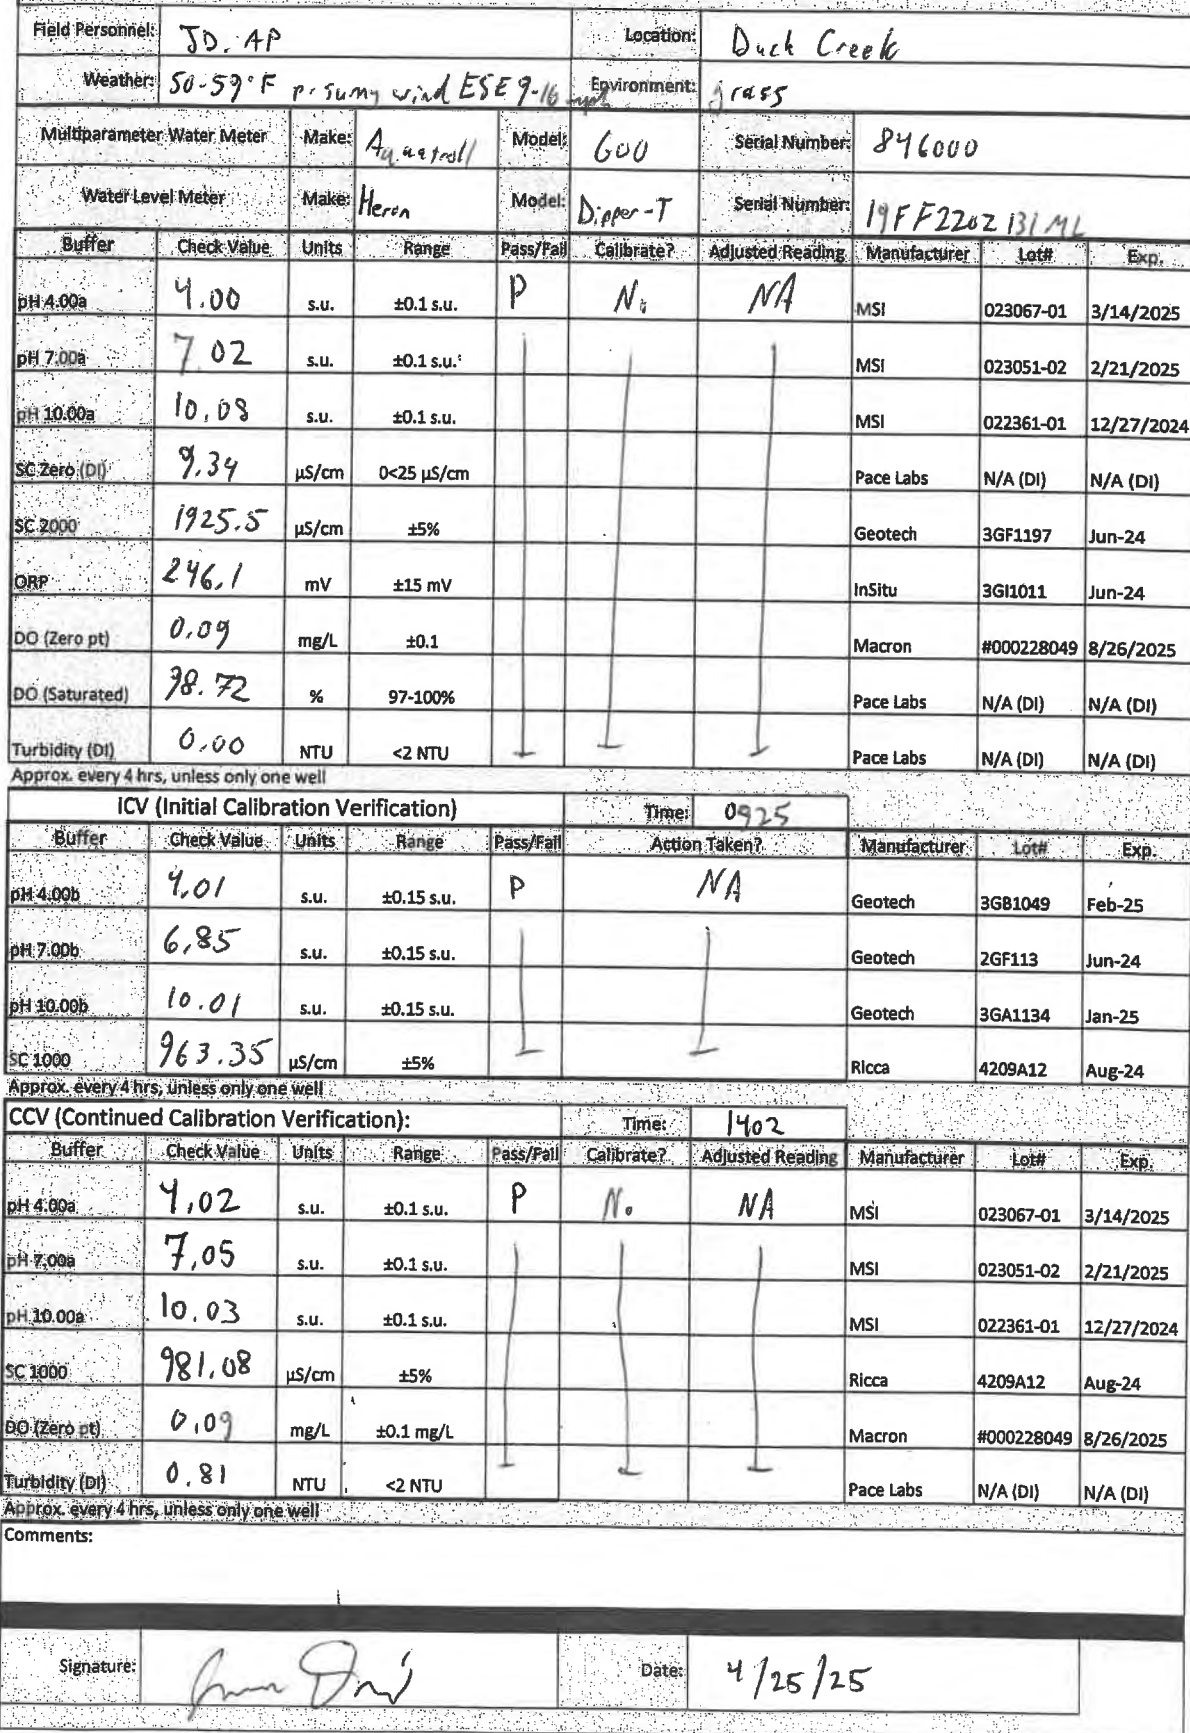 Field Personnel: JD. AP Location: Duck Creek
Weather: 50-59°F p. sunny wind ESE 9-16 mph Environment: grass
Multiparameter Water Meter Make: Aquatroll Model: 600 Serial Number: 846000
Water Level Meter Make: Heron Model: Dipper-T Serial Number: 19FF2202131ML
Buffer Check Value Units Range Pass/Fail Calibrate? Adjusted Reading Manufacturer Lot# Exp.
pH 4.00a 4.00 s.u. ±0.1 s.u. P No NA MSI 023067-01 3/14/2025
pH 7.00a 7.02 s.u. ±0.1 s.u. MSI 023051-02 2/21/2025
pH 10.00a 10.08 s.u. ±0.1 s.u. MSI 022361-01 12/27/2024
SC Zero (DI) 9.34 µS/cm 0<25 µS/cm Pace Labs N/A (DI) N/A (DI)
SC 2000 1925.5 µS/cm ±5% Geotech 3GF1197 Jun-24
ORP 246.1 mV ±15 mV InSitu 3GI1011 Jun-24
DO (Zero pt) 0.09 mg/L ±0.1 Macron #000228049 8/26/2025
DO (Saturated) 98.72 % 97-100% Pace Labs N/A (DI) N/A (DI)
Turbidity (DI) 0.00 NTU <2 NTU Pace Labs N/A (DI) N/A (DI)
Approx. every 4 hrs, unless only one well
ICV (Initial Calibration Verification) Time: 0925
Buffer Check Value Units Range Pass/Fail Action Taken? Manufacturer Lot# Exp.
pH 4.00b 4.01 s.u. ±0.15 s.u. P NA Geotech 3GB1049 Feb-25
pH 7.00b 6.85 s.u. ±0.15 s.u. Geotech 2GF113 Jun-24
pH 10.00b 10.01 s.u. ±0.15 s.u. Geotech 3GA1134 Jan-25
SC 1000 963.35 µS/cm ±5% Ricca 4209A12 Aug-24
Approx. every 4 hrs, unless only one well
CCV (Continued Calibration Verification): Time: 1402
Buffer Check Value Units Range Pass/Fail Calibrate? Adjusted Reading Manufacturer Lot# Exp.
pH 4.00a 4.02 s.u. ±0.1 s.u. P No NA MSI 023067-01 3/14/2025
pH 7.00a 7.05 s.u. ±0.1 s.u. MSI 023051-02 2/21/2025
pH 10.00a 10.03 s.u. ±0.1 s.u. MSI 022361-01 12/27/2024
SC 1000 981.08 µS/cm ±5% Ricca 4209A12 Aug-24
DO (Zero pt) 0.09 mg/L ±0.1 mg/L Macron #000228049 8/26/2025
Turbidity (DI) 0.81 NTU <2 NTU Pace Labs N/A (DI) N/A (DI)
Approx. every 4 hrs, unless only one well
Comments:
Signature: Date: 4/25/25